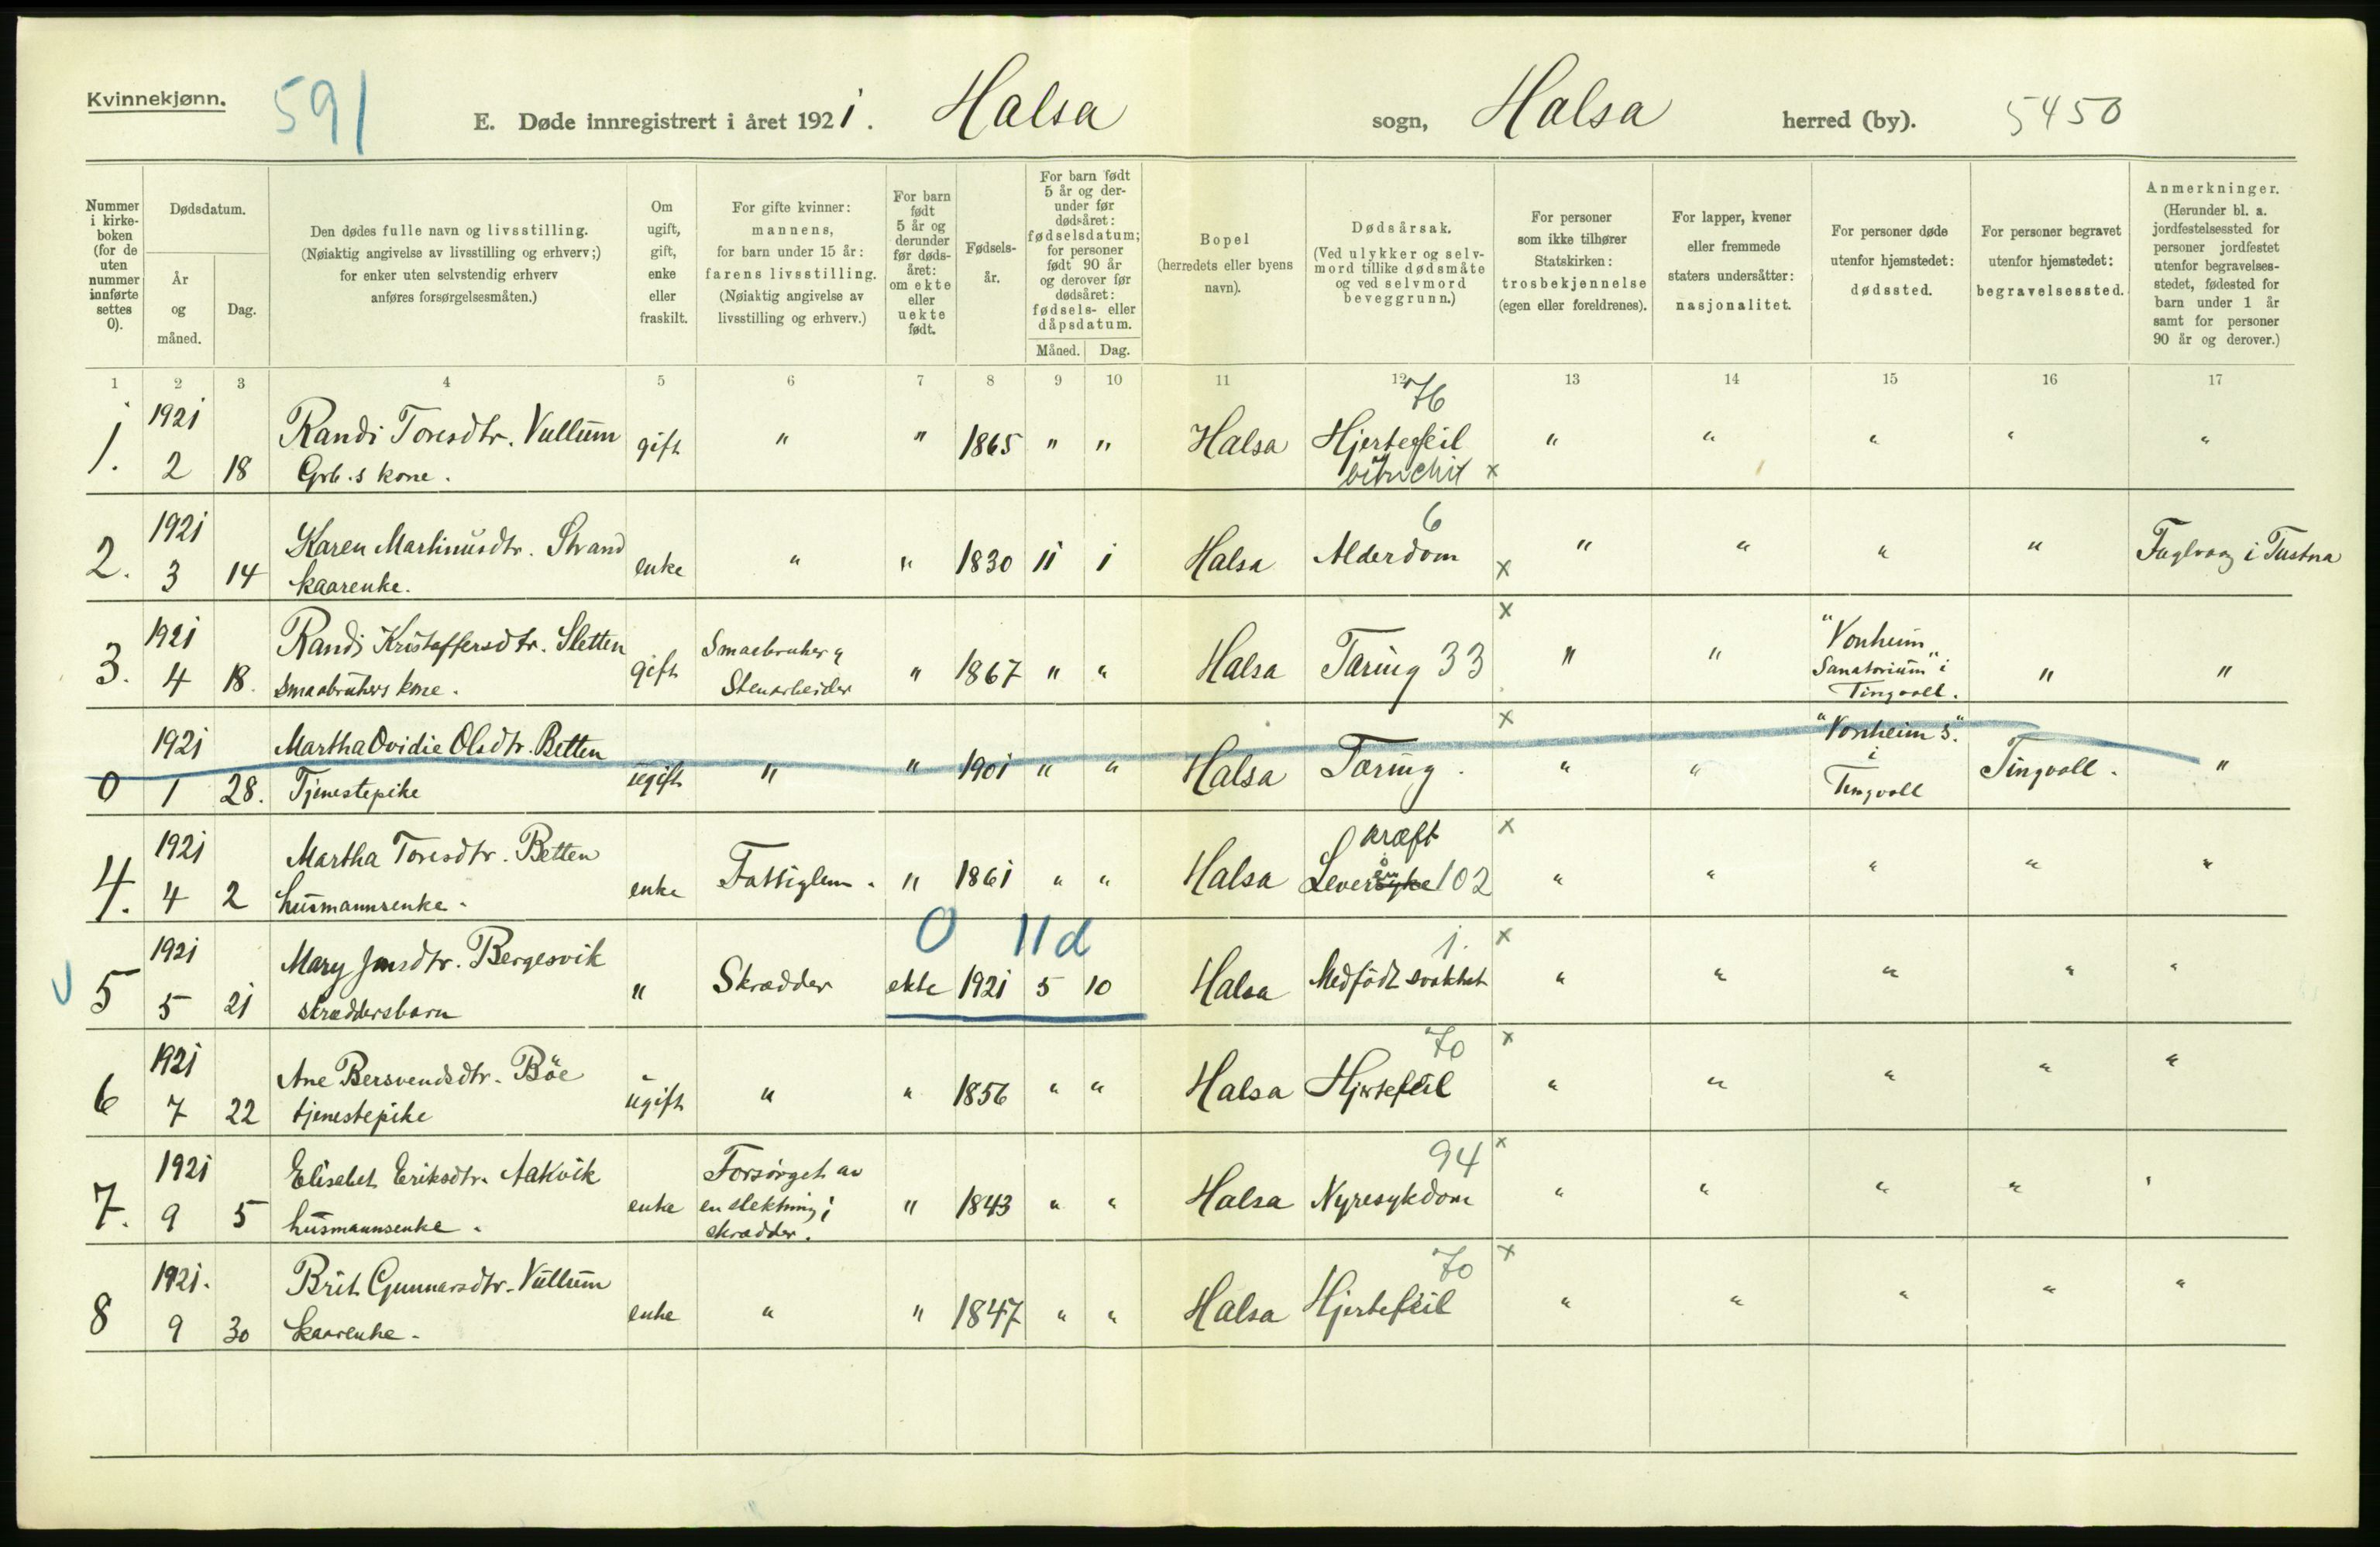 Kvinnekjønn.
591
E. Døde innregistrert i året 1921. Halsa sogn, Halsa herred (by). 5450
Nummer i kirkeboken (for de uten nummer innførte settes 0).
Dødsdatum.
År og måned.
Dag.
Den dødes fulle navn og livsstilling.
(Nøiaktig angivelse av livsstilling og erhverv;)
for enker uten selvstendig erhverv
anføres forsørgelsesmåten.)
Om ugift, gift, enke eller fraskilt.
For gifte kvinner: mannens, for barn under 15 år: farens livsstilling. (Nøiaktig angivelse av livsstilling og erhverv.)
For barn født 5 år og derunder før dødsåret: om ekte eller uekte født.
Fødselsår.
For barn født 5 år og derunder før dødsåret: fødselsdatum; for personer født 90 år og derover før dødsåret: fødsels- eller dåpsdatum.
Måned. Dag.
Bopel (herredets eller byens navn).
Dødsårsak. (Ved ulykker og selvmord tillike dødsmåte og ved selvmord beveggrunn.)
For personer som ikke tilhører Statskirken: trosbekjennelse (egen eller foreldrenes).
For lapper, kvener eller fremmede staters undersåtter: nasjonalitet.
For personer døde utenfor hjemstedet: dødssted.
For personer begravet utenfor hjemstedet: begravelsessted.
Anmerkninger. (Herunder bl. a. jordfestelsessted for personer jordfestet utenfor begravelsesstedet, fødested for barn under 1 år samt for personer 90 år og derover.)
1 2 3 4 5 6 7 8 9 10 11 12 13 14 15 16 17
76
1921 Randi Toresdtr. Vullum
1. gift " " 1865 " " Halsa Hjertefeil " " " " "
2 18 Grb.s kone. x
6
1921 Karen Martinusdtr. Strand
2. enke " " 1830 11 1 Halsa Alderdom " " " " Fuglvaag i Tustna
3 14 kaarenke. x
x
1921 Randi Kristoffersdtr. Sletten Smaabruker og "Vonheim
3. gift " 1867 " " Halsa Tæring 33 " " Sanatorium" i " "
4 18. smaabrukers kone. Stenarbeider Tingvoll.
x
1921 Martha Ovidie Olsdtr. Betten "Vonheim S."
0 ugift " " 1901 " " Halsa Tæring. " " i Tingvoll. "
1 28. Tjenestepike Tingvoll
kræft x
1921 Martha Toresdtr. Betten
4. enke Fattiglem. " 1861 " " Halsa Leversyke 102 " " " " "
4 2 husmannsenke.
0 11 d
1. x
1921 Mary Jensdtr. Bergesvik
5 " Skrædder ekte 1921 5 10 Halsa Medfødt svakhet " " " " "
5 21 skræddersbarn
70 x
1921 Ane Bersvendsdtr. Böe
6 ugift " " 1856 " " Halsa Hjertefeil " " " " "
7 22 tjenestepike
94 x
1921 Elisabet Eriksdtr. Aakvik Forsörget av
7. enke en slektning i " 1843 " " Halsa Nyresykdom " " " " "
9 5 husmannsenke. skrædder.
70 x
1921. Brit Gunnarsdtr. Vullum
8 enke " " 1847 " " Halsa Hjertefeil " " " " "
9 30 kaarenke.